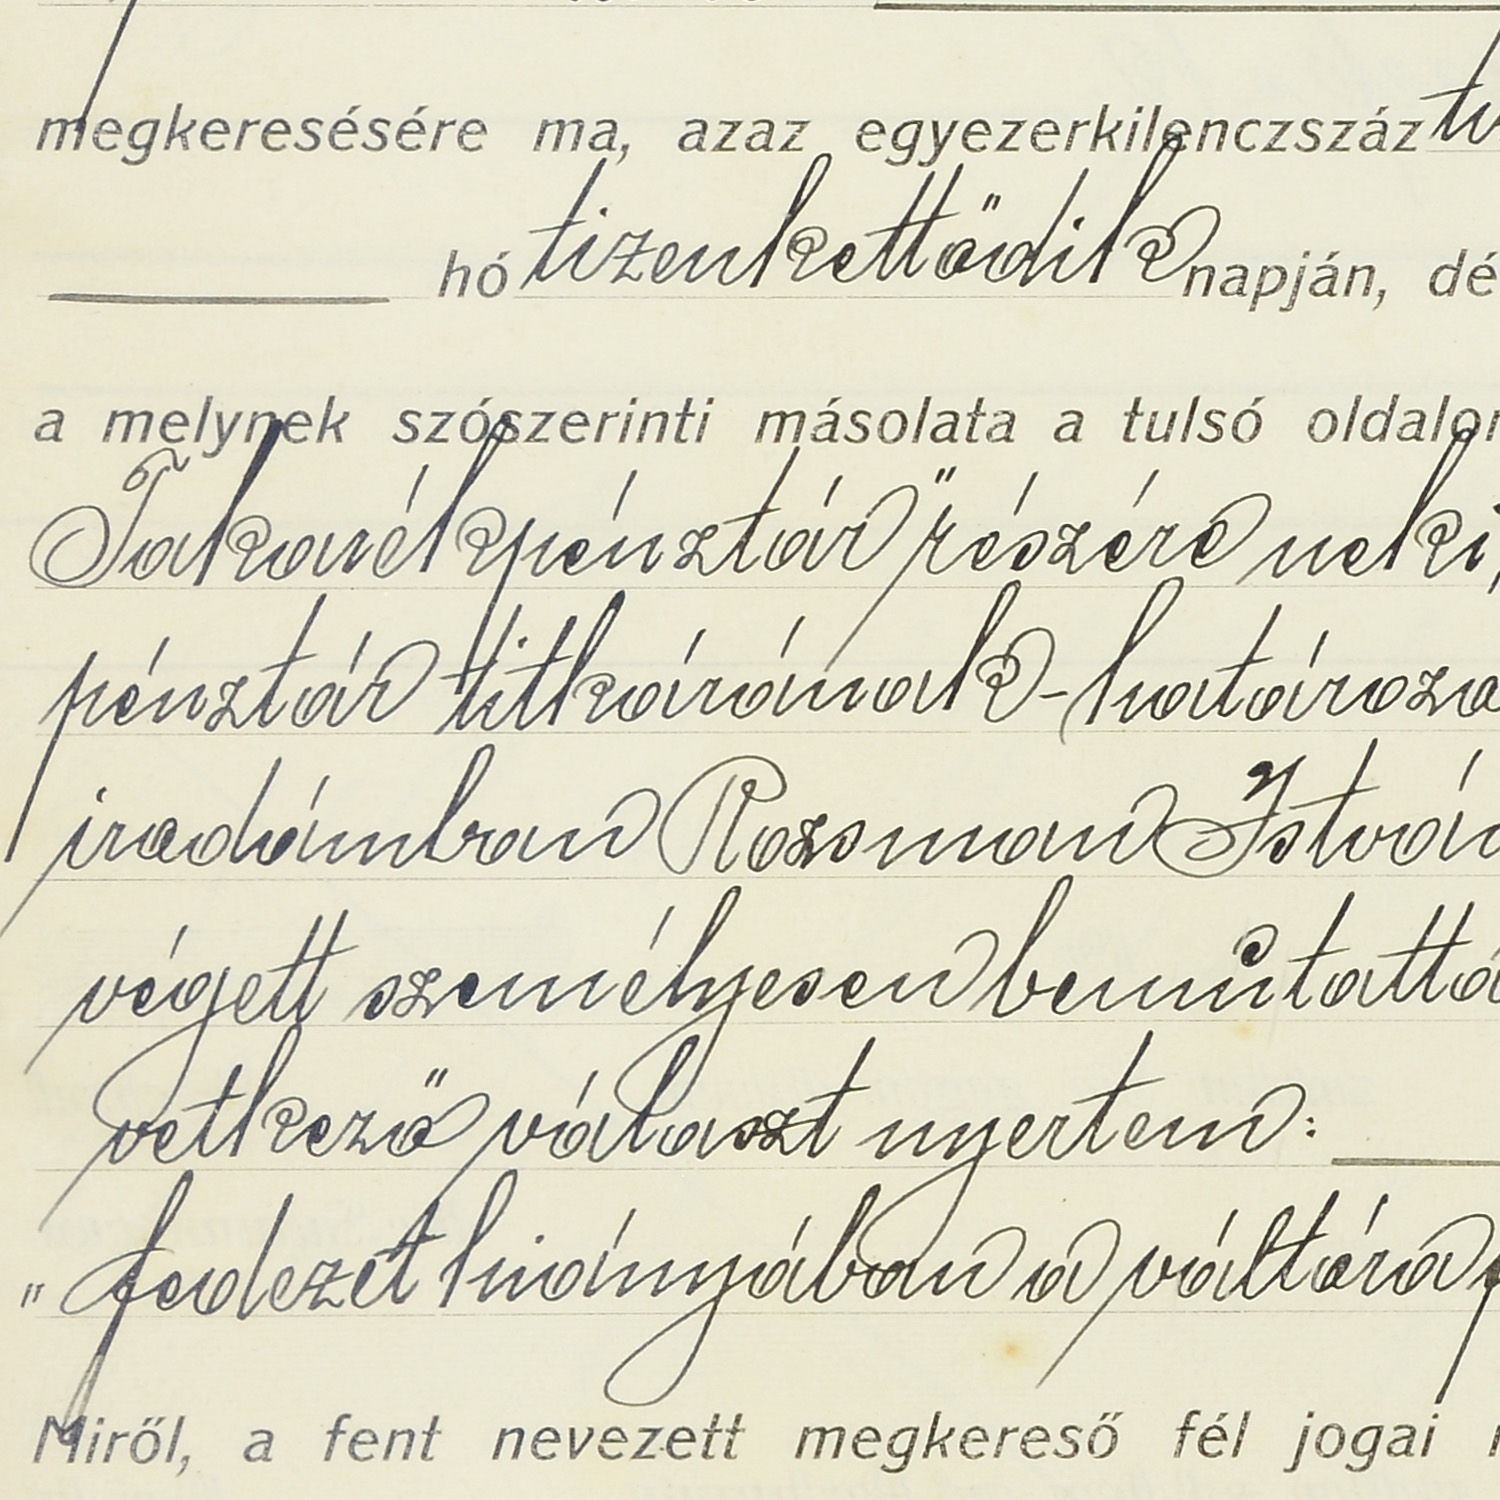 megkeresésére ma, azaz egyezerkilenczszáz
hó tizenkettödik napján, dé
a melynek szószerinti másolata a tulsó oldalon
Takarékpénztár" részére neki,
pénztár titkárának-határoza
irodámban Rozsman István
végett személyesen bemutattá
vetkező választ nyertem:
„fedezet hiányában a váltóra
Miről, a fent nevezett megkereső fél jogai